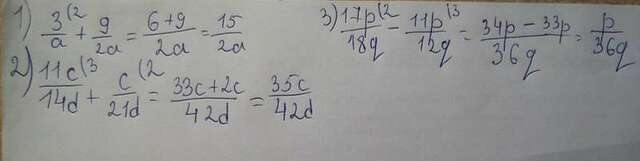 1) 3/a (2 + 9/2a = 6+9/2a = 15/2a
2) 11c/14d (3 + c/21d (2 = 33c+2c/42d = 35c/42d
3) 17p/18q (2 - 11p/12q (3 = 34p-33p/36q = p/36q